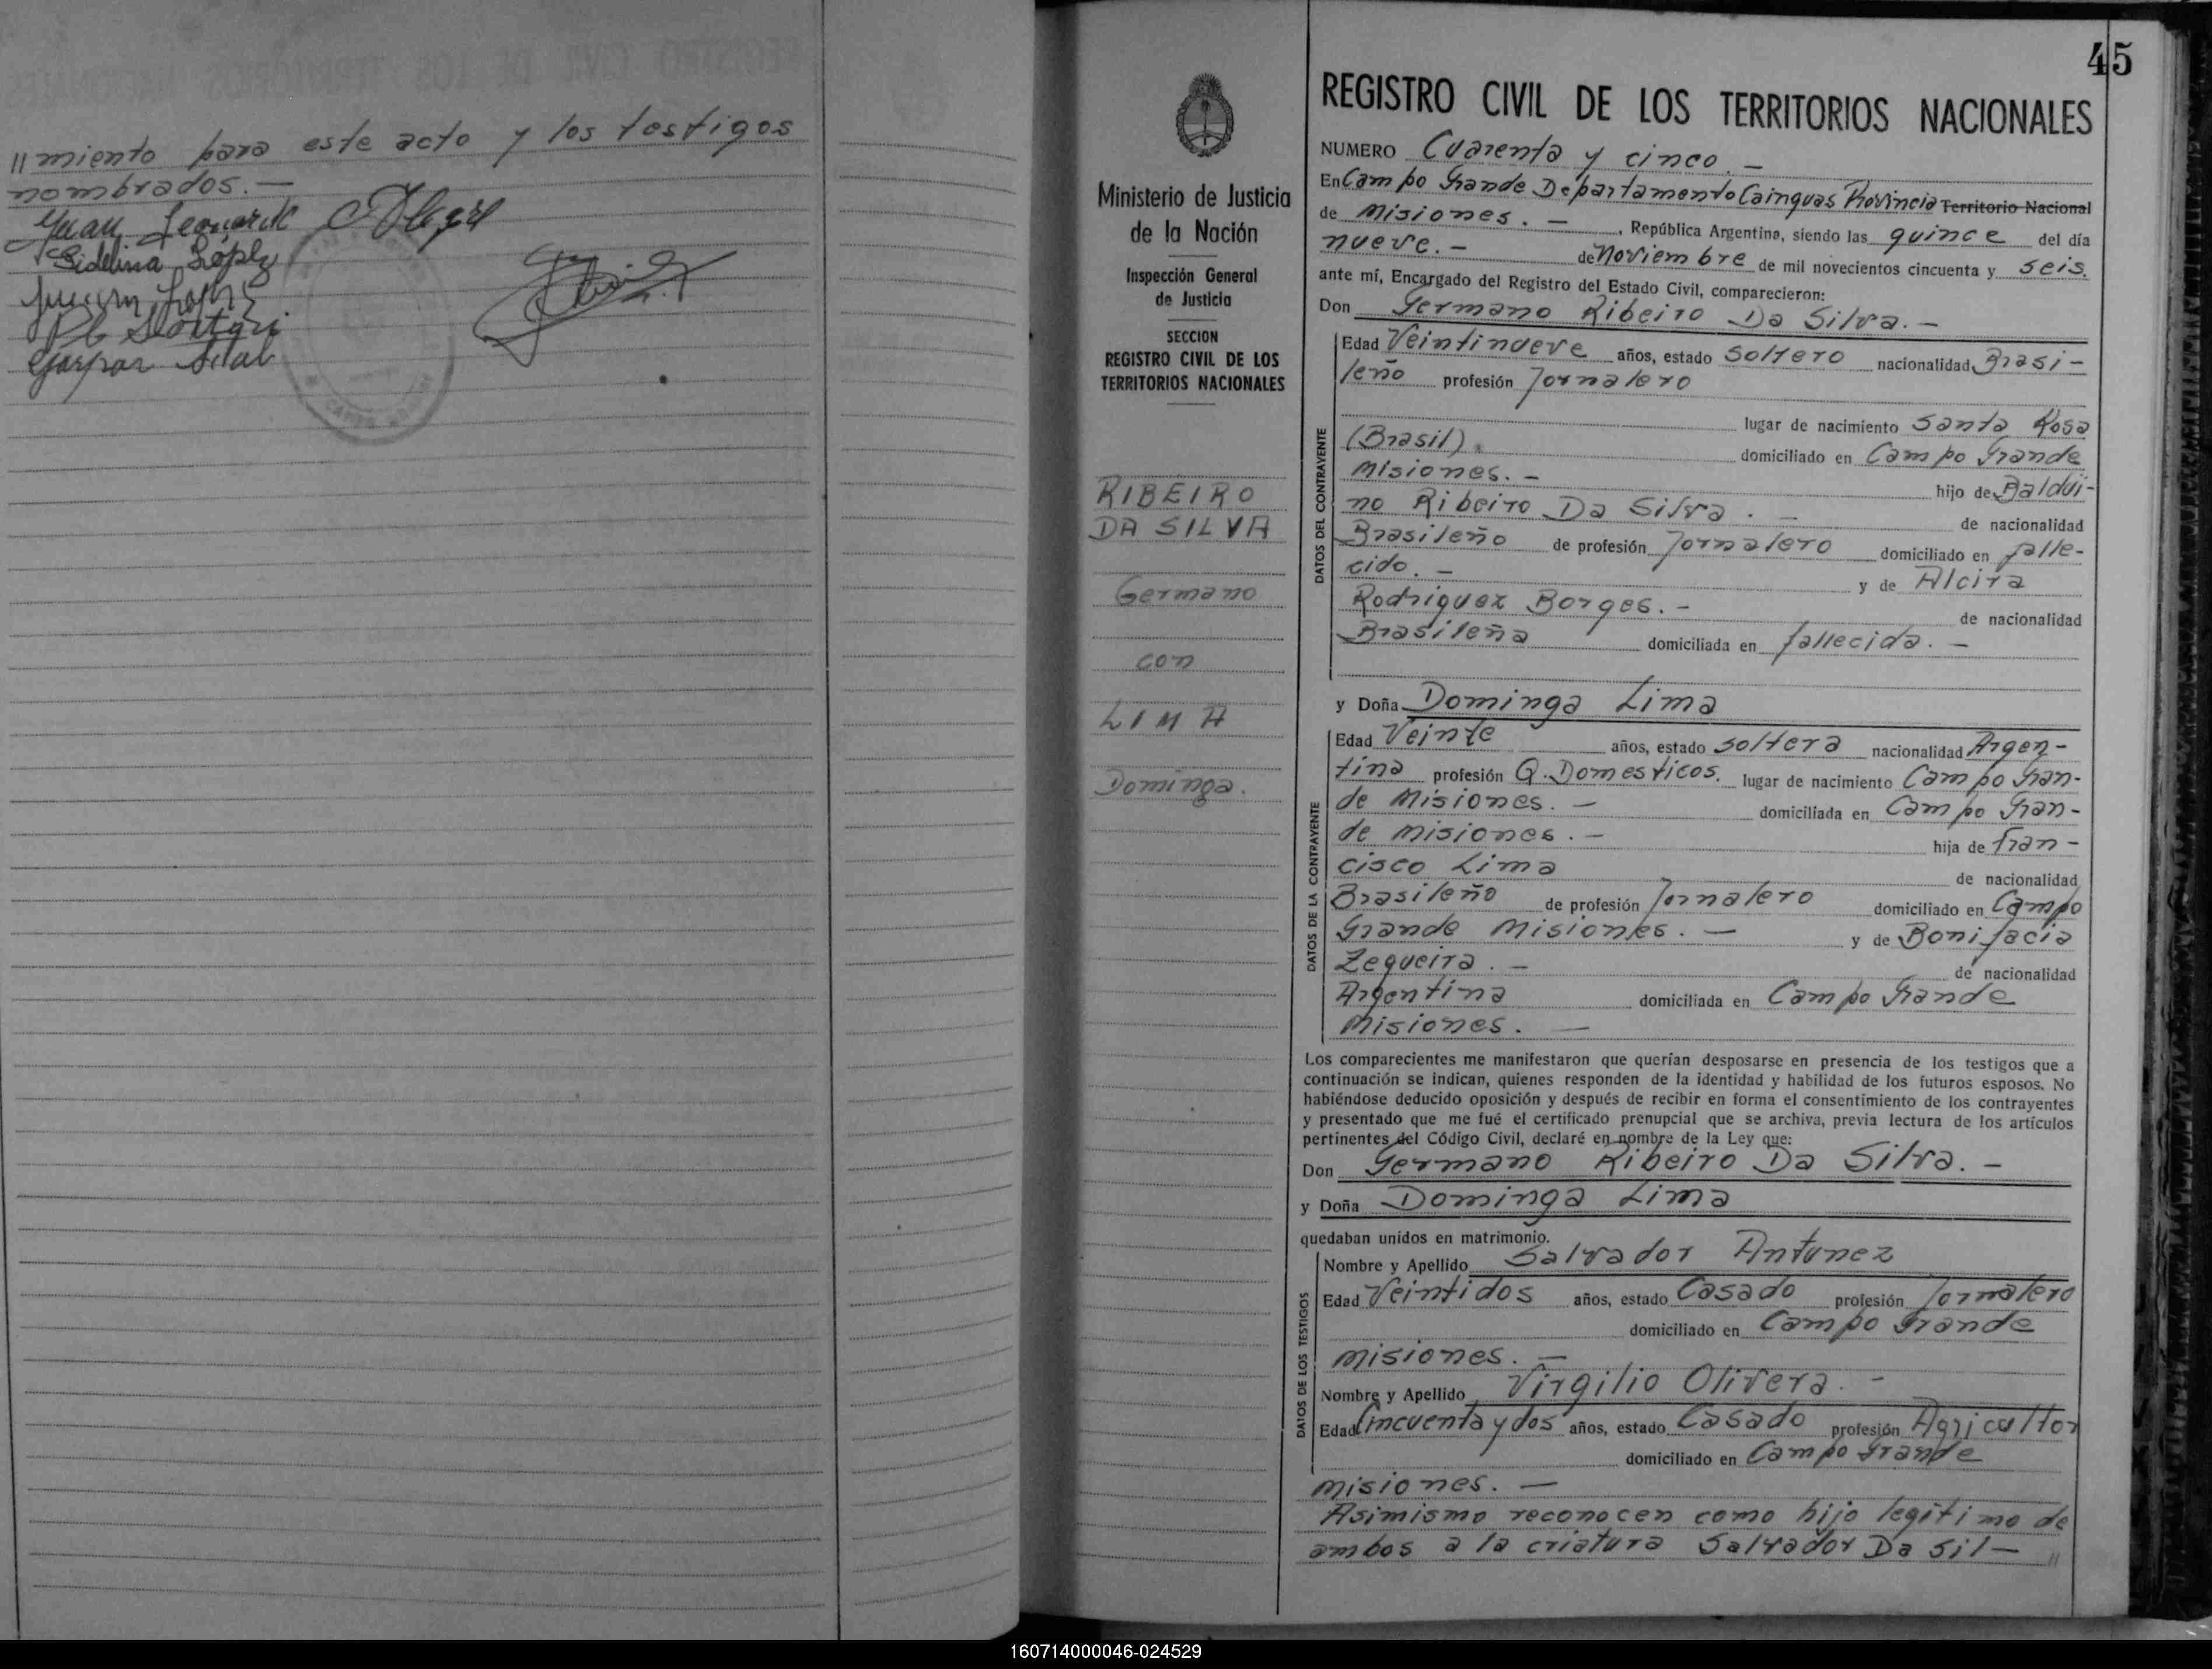 // miento para este acto y los testigos
nombrados. —
Juan Leonardo
Sidelina López
Gaspar
45
REGISTRO CIVIL DE LOS TERRITORIOS NACIONALES
Ministerio de Justicia
de la Nación
Inspección General
de Justicia
SECCION
REGISTRO CIVIL DE LOS
TERRITORIOS NACIONALES
RIBEIRO
DA SILVA
Germano
con
LIMA
Dominga.
NUMERO Cuarenta y cinco. —
En Campo Grande Departamento Cainguas Provincia Territorio Nacional
de Misiones. — , República Argentina, siendo las quince del día
nueve. — de Noviembre de mil novecientos cincuenta y seis.
ante mí, Encargado del Registro del Estado Civil, comparecieron:
Don Germano Ribeiro Da Silva. —
DATOS DEL CONTRAYENTE
Edad Veintinueve años, estado soltero nacionalidad Brasi-
leño profesión Jornalero
lugar de nacimiento Santa Rosa
(Brasil). domiciliado en Campo Grande
Misiones. — hijo de Baldui-
no Ribeiro Da Silva. — de nacionalidad
Brasileño de profesión Jornalero domiciliado en falle-
cido. — y de Alcira
Rodriguez Borges. — de nacionalidad
Brasileña domiciliada en fallecida. —
y Doña Dominga Lima
DATOS DE LA CONTRAYENTE
Edad Veinte años, estado soltera nacionalidad Argen-
tina profesión Q. Domesticos. lugar de nacimiento Campo Gran-
de Misiones. — domiciliada en Campo Gran-
de Misiones. — hija de Fran-
cisco Lima de nacionalidad
Brasileño de profesión Jornalero domiciliado en Campo
Grande Misiones. — y de Bonifacia
Zequeira. — de nacionalidad
Argentina domiciliada en Campo Grande
Misiones. —
Los comparecientes me manifestaron que querían desposarse en presencia de los testigos que a
continuación se indican, quienes responden de la identidad y habilidad de los futuros esposos. No
habiéndose deducido oposición y después de recibir en forma el consentimiento de los contrayentes
y presentado que me fué el certificado prenupcial que se archiva, previa lectura de los artículos
pertinentes del Código Civil, declaré en nombre de la Ley que:
Don Germano Ribeiro Da Silva. —
y Doña Dominga Lima
quedaban unidos en matrimonio.
DATOS DE LOS TESTIGOS
Nombre y Apellido Salvador Antunez
Edad Veintidos años, estado Casado profesión Jornalero
domiciliado en Campo Grande
Misiones. —
Nombre y Apellido Virgilio Olivera. —
Edad Cincuenta y dos años, estado Casado profesión Agricultor
domiciliado en Campo Grande
Misiones. —
Asimismo reconocen como hijo legitimo de
ambos a la criatura Salvador Da Sil— //
160714000046-024529